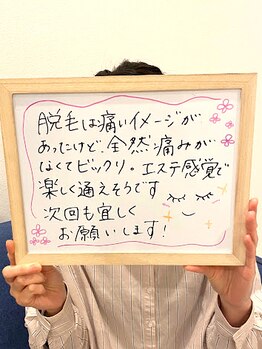 脱毛は痛いイメージが
あったけど、全然痛みが
なくてビックリ。エステ感覚で
楽しく通えそうです
次回も宜しく
お願いします！